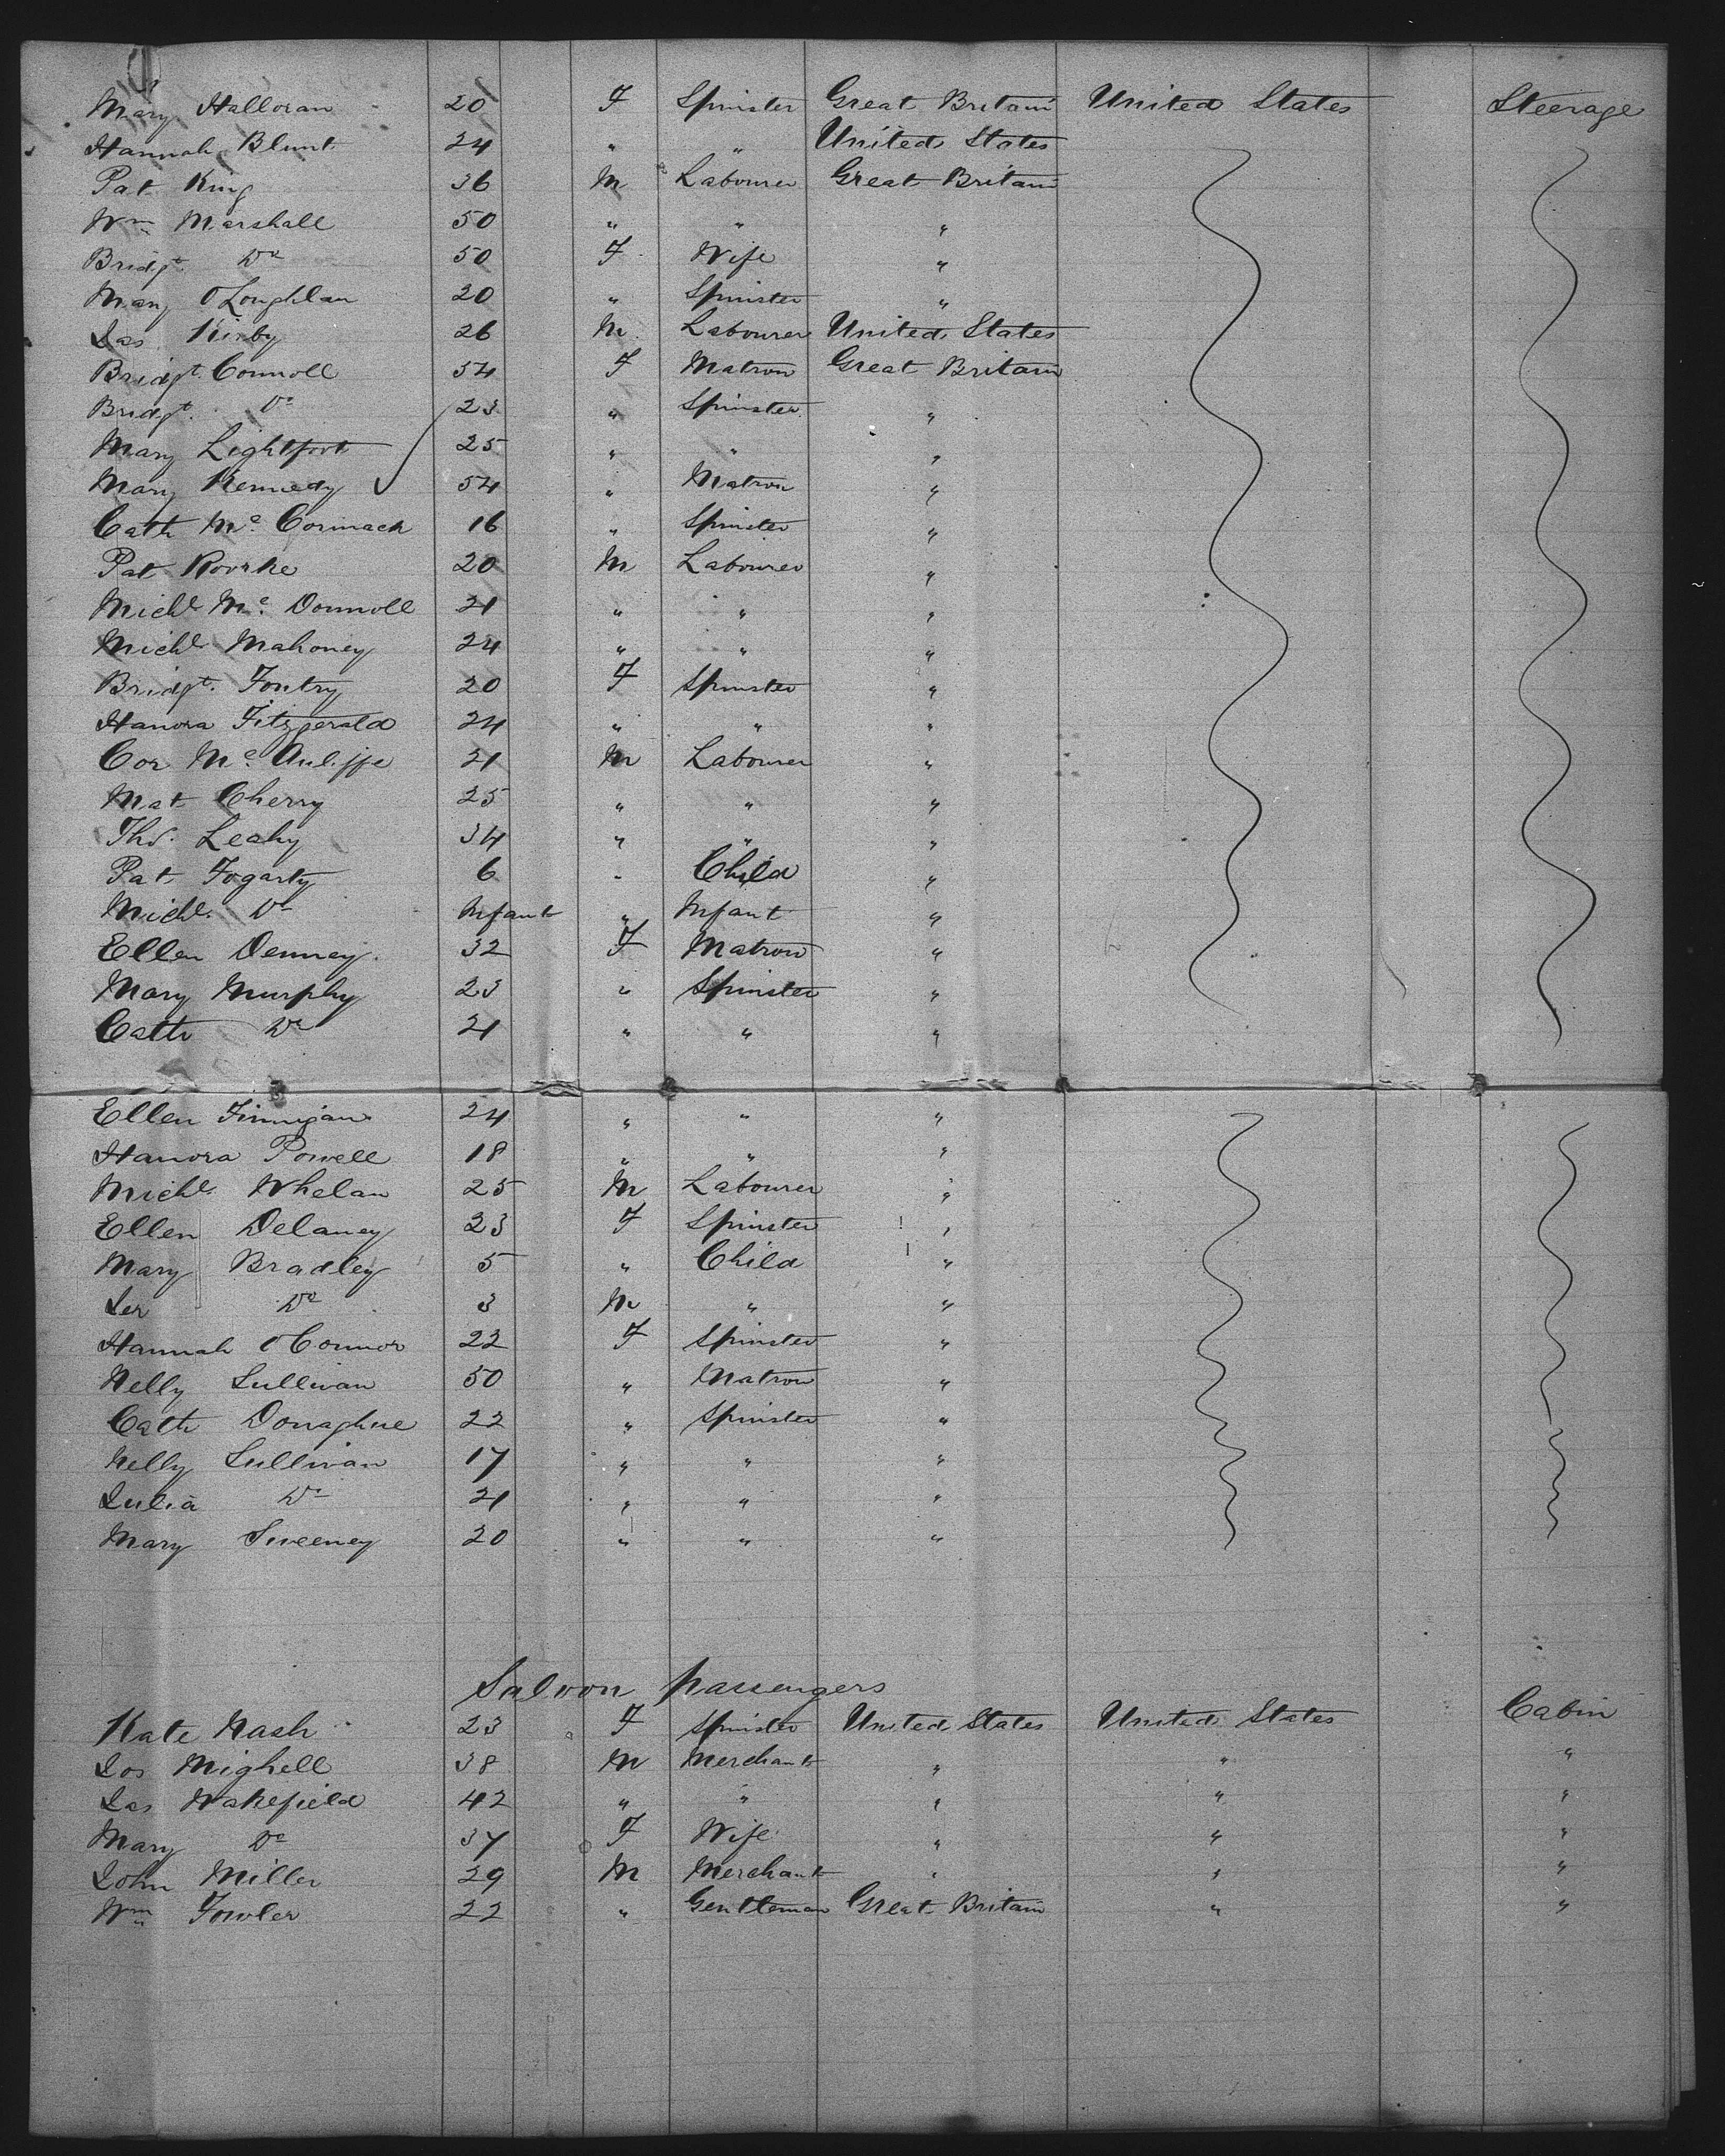 Mary Halloran 20 F Spinster Great Britain United States Steerage
Hannah Blunt 24 " " United States
Pat King 36 M Labourer Great Britain
Wm Marshall 50 " " "
Bridgt. Do 50 F Wife "
Mary O'Loughlan 20 " Spinster "
Jas Kirby 26 M Labourer United States
Bridgt. Connoll 54 F Matron Great Britain
Bridgt. Do 23 " Spinster "
Mary Lightfoot 25 " " "
Mary Kennedy 54 " Matron "
Cath Mc. Cormack 16 " Spinster "
Pat Rourke 20 M Labourer "
Michl Mc. Donnoll 21 " " "
Michl Mahoney 24 " " "
Bridgt. 20 F Spinster "
Hanora Fitzgerald 24 " " "
Cor Mc. Auliffe 21 M Labourer "
Mat Cherry 25 " " "
Thos. Leahy 34 " " "
Pat Fogarty 6 " Child "
Michl. Do Infant " Infant "
Ellen Denney 32 F Matron "
Mary Murphy 23 " Spinster "
Cath Do 21 " " "
Ellen Finnigan 24 " " "
Hanora Powell 18 " " "
Michl Whelan 25 M Labourer "
Ellen Delaney 23 F Spinster "
Mary Bradley 5 " Child "
Jer Do 3 M " "
Hannah O'Connor 22 F Spinster "
Nelly Sullivan 50 " Matron "
Cath Donaghue 22 " Spinster "
Nelly Sullivan 17 " " "
Julia Do 21 " " "
Mary Sweeney 20 " " "
Saloon passengers
Kate Nash 23 F Spinster United States United States Cabin
Jos Mighell 38 M Merchant " " "
Jas Wakefield 42 " " " " "
Mary Do 37 F Wife " " "
John Miller 29 M Merchant " " "
Wm Fowler 22 " Gentleman Great Britain " "